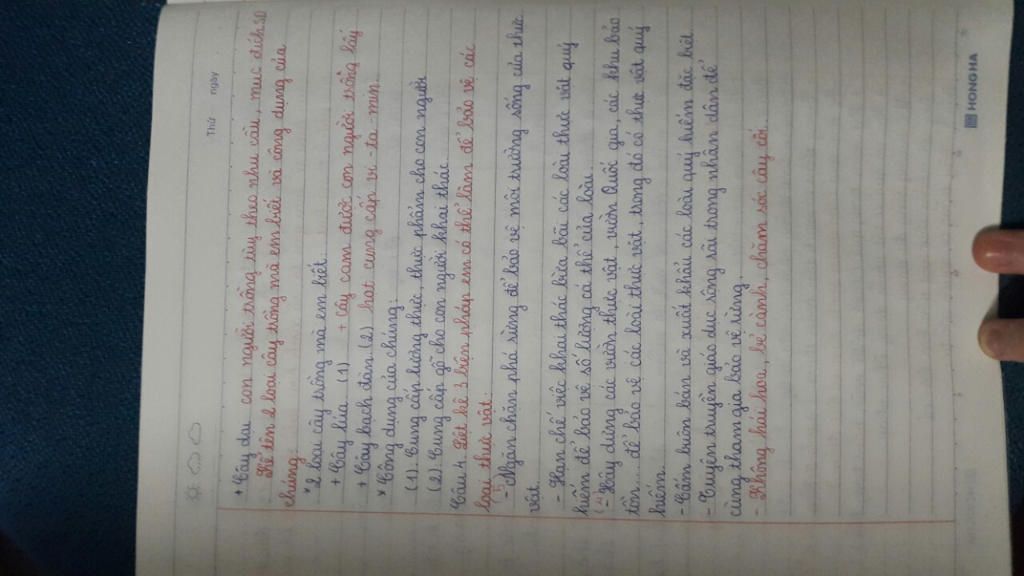 Thứ ngày
+ Cây do con người trồng tùy theo nhu cầu, mục đích SD
Kể tên 2 loại cây trồng mà em biết và công dụng của
chúng.
* 2 loại cây trồng mà em biết.
+ Cây lúa (1) + Cây cam được con người trồng lấy
+ Cây bạch đàn (2) hạt cung cấp vi-ta-min.
* Công dụng của chúng:
(1). Cung cấp lương thực, thực phẩm cho con người
(2). Cung cấp gỗ cho con người khai thác
Câu 4. Liệt kê 3 biện pháp em có thể làm để bảo vệ các
loại thực vật.
- Ngăn chặn phá rừng để bảo vệ môi trường sống của thực
vật.
- Hạn chế việc khai thác bừa bãi các loài thực vật quý
hiếm để bảo vệ số lượng cá thể của loài.
- Xây dựng các vườn thực vật, vườn Quốc gia, các khu bảo
tồn... để bảo vệ các loài thực vật, trong đó có thực vật quý
hiếm.
- Cấm buôn bán và xuất khẩu các loài quý hiếm đặc biệt.
- Tuyên truyền giáo dục rộng rãi trong nhân dân để
cùng tham gia bảo vệ rừng.
- Không hái hoa, bẻ cành, chăm sóc cây cối.
HONG HA